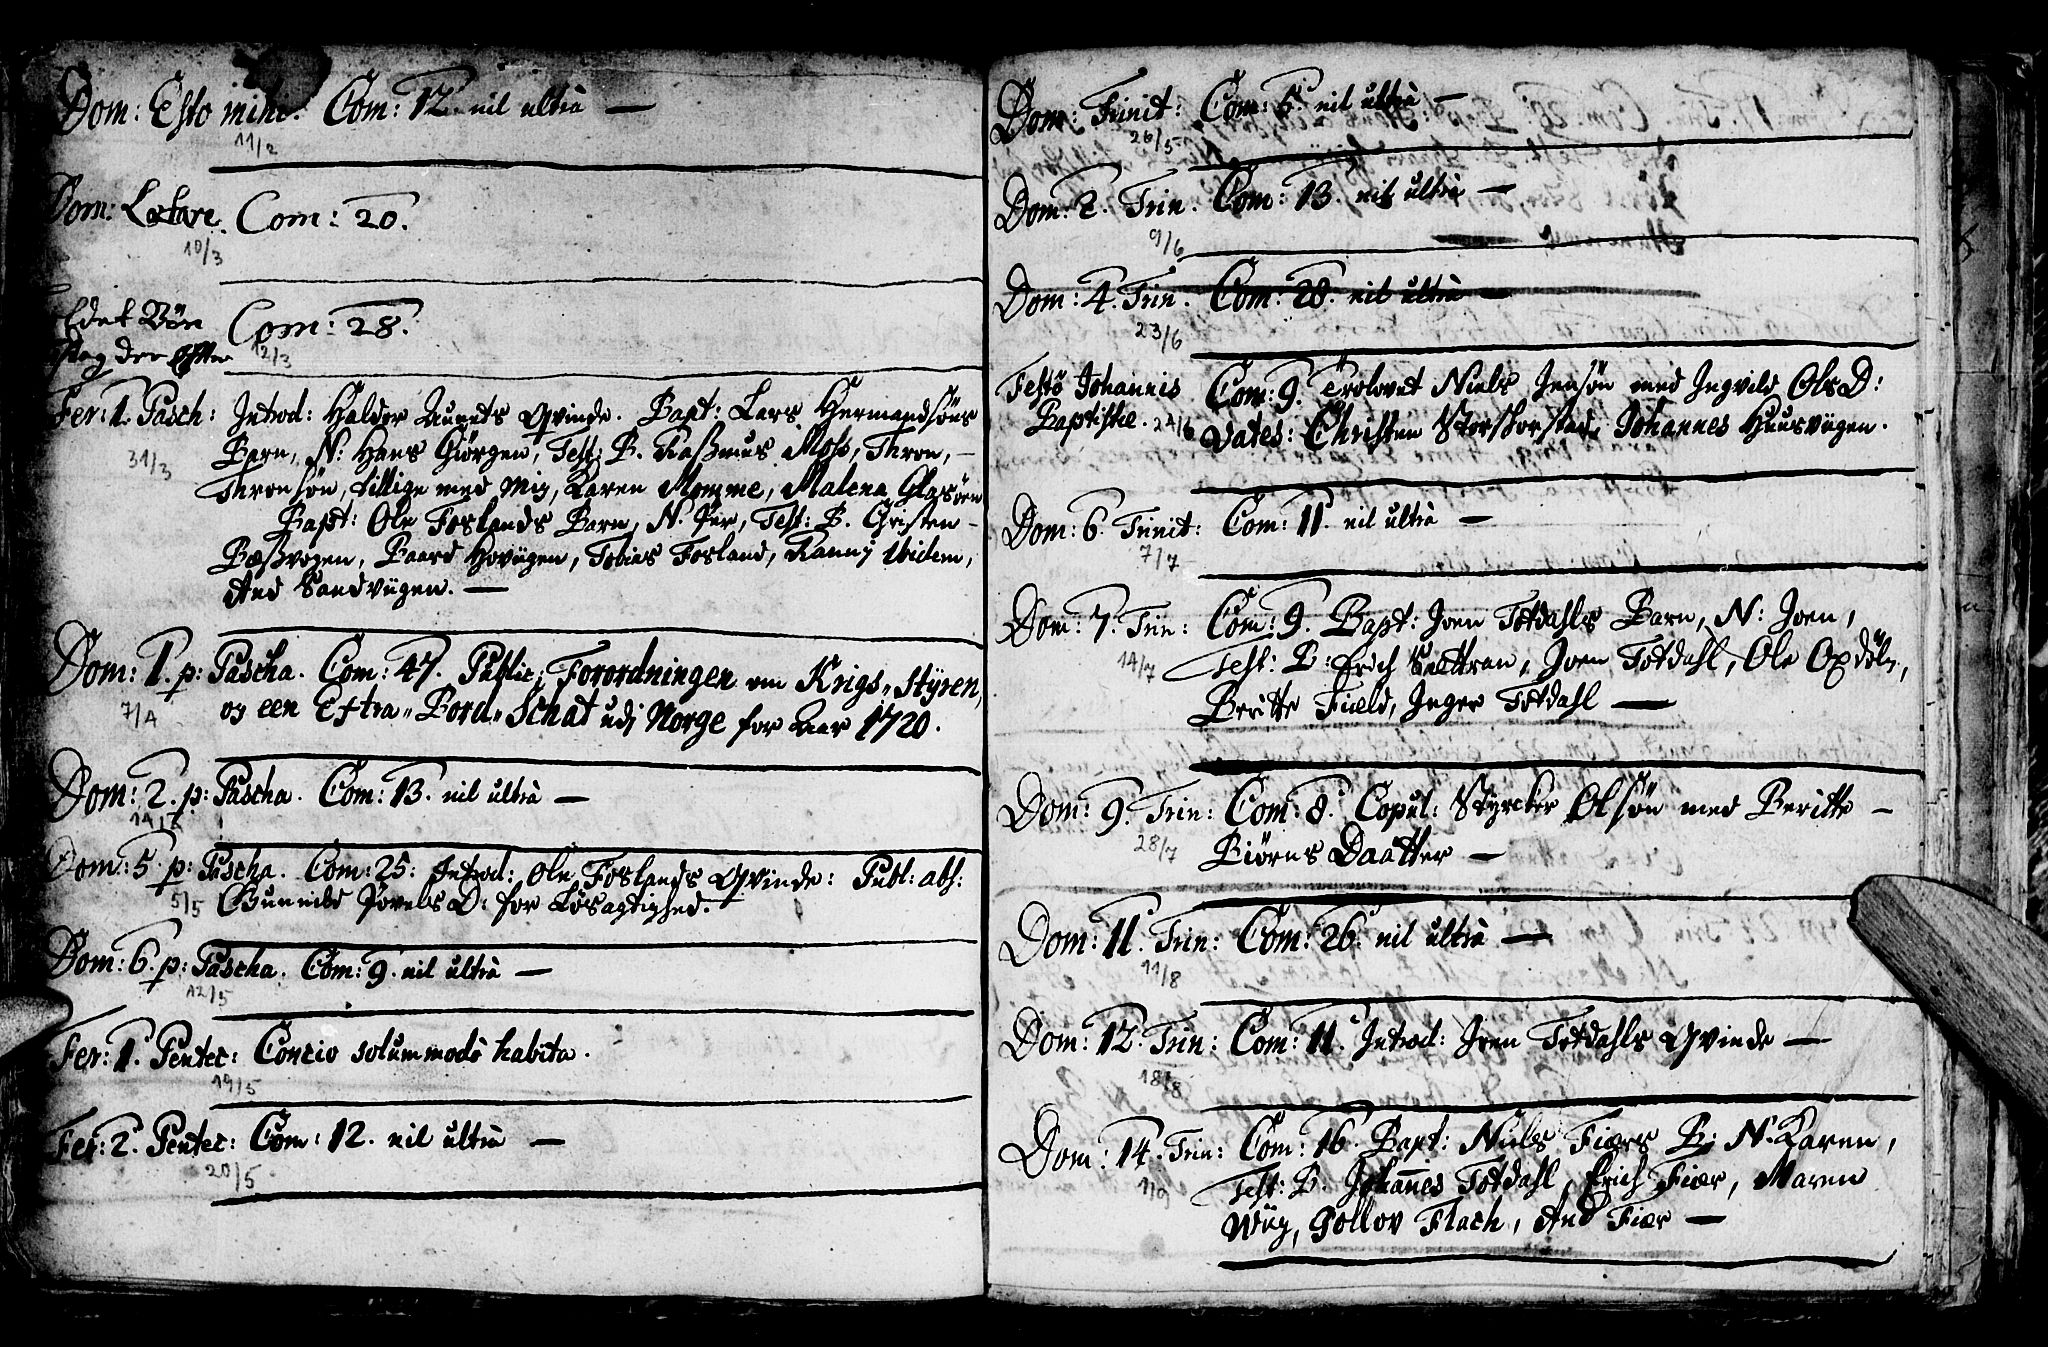 Dom: Esto mihi. Com: 12. nil ultra —
11/2
Dom: Lætare. Com: 20.
10/3
Com: 28.
12/3
Fer: 1. Pasch: Introd: Haldor Aunets Qvinde. Bapt: Lars Hermandsöns
31/3
Barn, N: Hans Giörgen, Test: B. Raßmus Moss, Thron, —
Thronsön, tillige med Mig, Karen Momme, Malena Glasöen
Bapt: Ole Foslands Barn, N. Per, Test: B. Christen —
Beßvogen, Baard Hovügen, Tobias Fosland, Ranni ibidem,
And Sandvügen. —
Dom: 1. p: Pascha. Com: 47. Public: Forordningen om Krigs-Styren,
7/4
og een Extra-Bord-Schat udj Norge for Aar 1720.
Dom: 2. p: Pascha. Com: 13. nil ultra —
14/4
Dom: 5. p: Pascha. Com: 25: Introd: Ole Foslands Qvinde: Publ: abs:
5/5
Gunnild JovelsD: for Lösagtighed.
Dom: 6. p: Pascha. Com: 9. nil ultra —
12/5
Fer: 1. Pentec: Concio solummodo habita.
19/5
Fer: 2. Pentec: Com: 12. nil ultra —
20/5
Dom: Trinit: Com: 6. nil ultra —
26/5
Dom: 2. Trin. Com: 13. nil ultra —
9/6
Dom: 4. Trin. Com: 28. nil ultra —
23/6
Festo Johannis Com: 9. Trolovet Niels Jensön med Ingvild OlsD:
Baptistæ. 24/6 Vates: Christen Storskorstad, Johannes Huusvügen.
Dom: 6. Trinit: Com: 11. nil ultra —
7/7
Dom: 7. Trin: Com: 9. Bapt: Joen Totdahls Barn, N: Joen,
14/7
Test: B: Erich Sættran, Joen Totdahl, Ole Opdöln,
Beritte Fiæld, Inger Totdahl —
Dom: 9. Trin: Com: 8. Copul: Styrcker Olsön med Beritte —
28/7
Biörns Daatter —
Dom: 11. Trin: Com: 26. nil ultra —
11/8
Dom: 12. Trin: Com: 11. Introd: Joen Totdahls Qvinde —
18/8
Dom: 14. Trin: Com: 16. Bapt: Niels Fiærs B: N. Karen,
1/9
Test: B. Johannes Totdahl, Erich Fiær, Maren
Wüg, Gollov Flach, And Fiær —